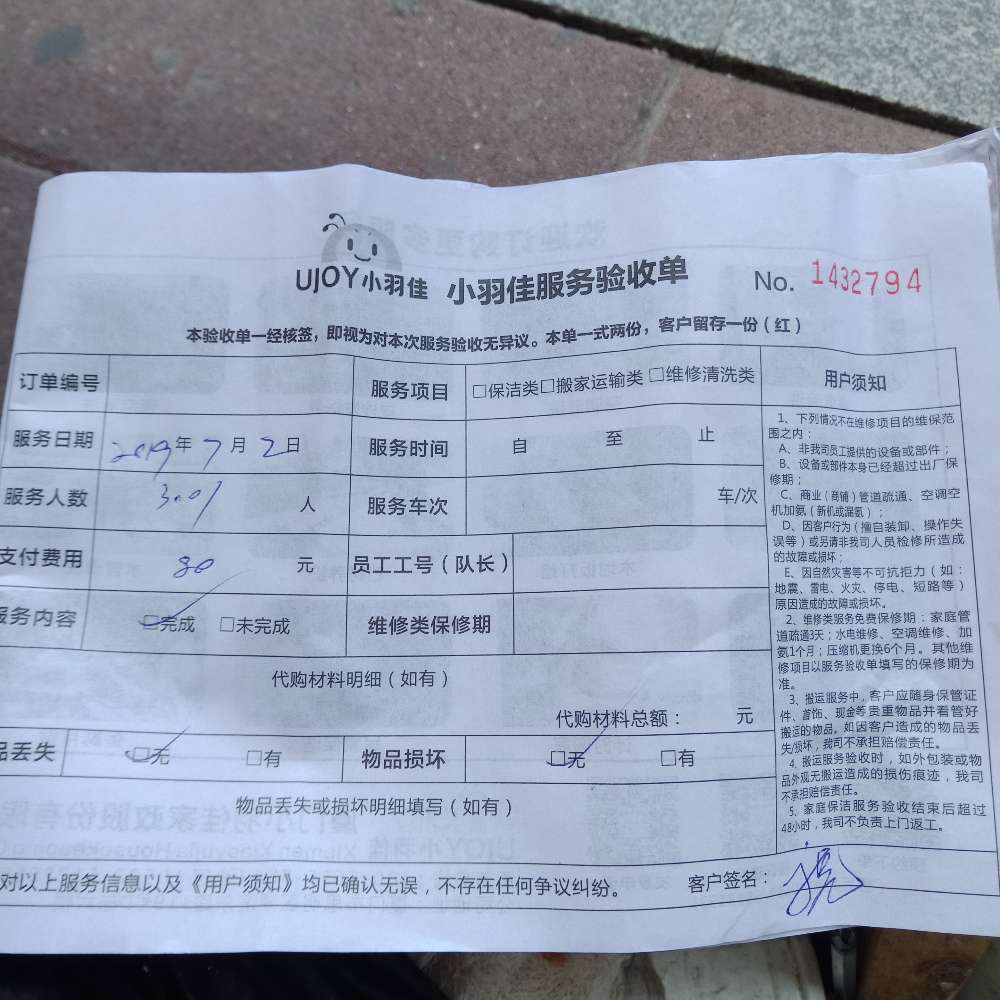 UJOY小羽佳 小羽佳服务验收单 No. 1432794
本验收单一经核签，即视为对本次服务验收无异议。本单一式两份，客户留存一份（红）
订单编号 服务项目 □保洁类□搬家运输类 □维修清洗类
服务日期 2019年 7月 2日 服务时间 自 至 止
服务人数 人 服务车次 车/次
支付费用 80 元 员工工号（队长）
服务内容 □完成 □未完成 维修类保修期
代购材料明细（如有）
代购材料总额： 元
品丢失 □无 □有 物品损坏 □无 □有
物品丢失或损坏明细填写（如有）
对以上服务信息以及《用户须知》均已确认无误，不存在任何争议纠纷。 客户签名：
用户须知
1、下列情况不在维修项目的维保范
围之内：
A、非我司员工提供的设备或部件；
B、设备或部件本身已经超过出厂保
修期；
C、商业（商铺）管道疏通、空调空
机加氨（新机或漏氨）；
D、因客户行为（擅自装卸、操作失
误等）或另请非我司人员检修所造成
的故障或损坏；
E、因自然灾害等不可抗拒力（如：
地震、雷电、火灾、停电、短路等）
原因造成的故障或损坏。
2、维修类服务免费保修期：家庭管
道疏通3天；水电维修、空调维修、加
氨1个月；压缩机更换6个月。其他维
修项目以服务验收单填写的保修期为
准。
3、搬运服务中，客户应随身保管证
件、首饰、现金等贵重物品并看管好
搬运的物品。如因客户造成的物品丢
失/损坏，我司不承担赔偿责任。
4、搬运服务验收时，如外包装或物
品外观无搬运造成的损伤痕迹，我司
不承担赔偿责任。
5、家庭保洁服务验收结束后超过
48小时，我司不负责上门返工。